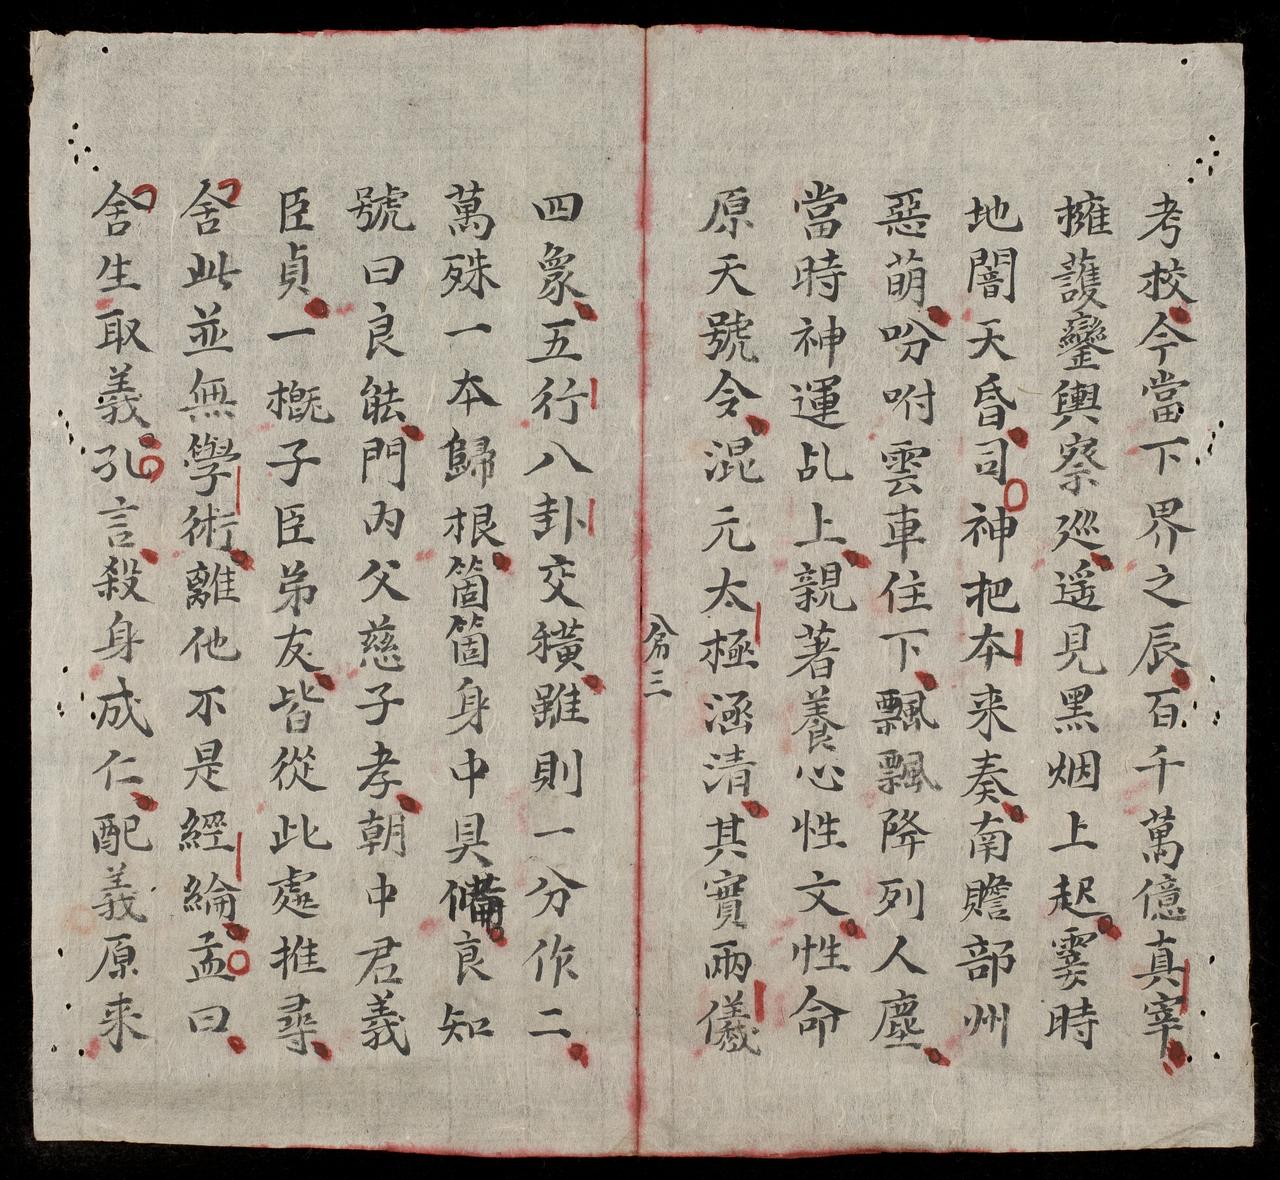 考校今當下界之辰百千萬億真宰
擁護鑾輿察巡遥見黑烟上起霎時
地闇天昏司神把本来奏南贍部州
惡萌吩咐雲車住下飄飄降列人塵
當時神運乩上親著養心性文性命
原天號令混元太極涵清其實兩儀
四象五行八卦交横雖則一分作二
萬殊一本歸根箇箇身中具備良知
號曰良能門内父慈子孝朝中君義
臣貞一概子臣弟友皆從此處推尋
舍此並無學術離他不是經綸孟曰
舍生取義孔言殺身成仁配義原来
三